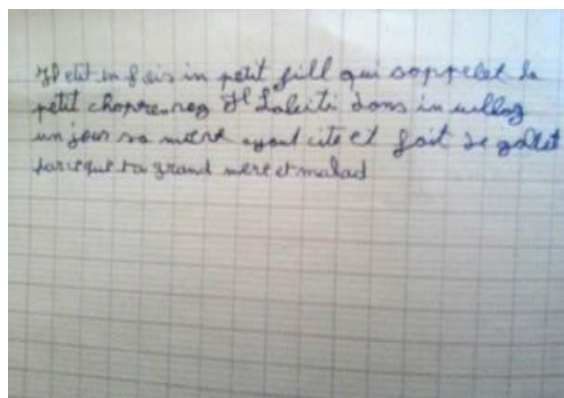 Il etit in fois in petit fill qui soppelet le
petit chapre.nrog Il Labiti dans in willag
un jour sa mère ayant cite et fait de galet
parceque ta grand mère et malad